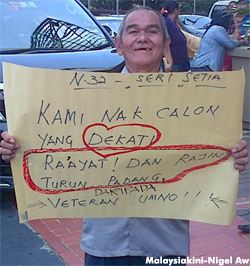 N.32 - SERI SETIA
KAMI NAK CALON
YANG DEKATI
RA'AYAT! DAN RAJIN
TURUN PADANG.
DARIPADA
VETERAN UMNO!!
Malaysiakini-Nigel Aw